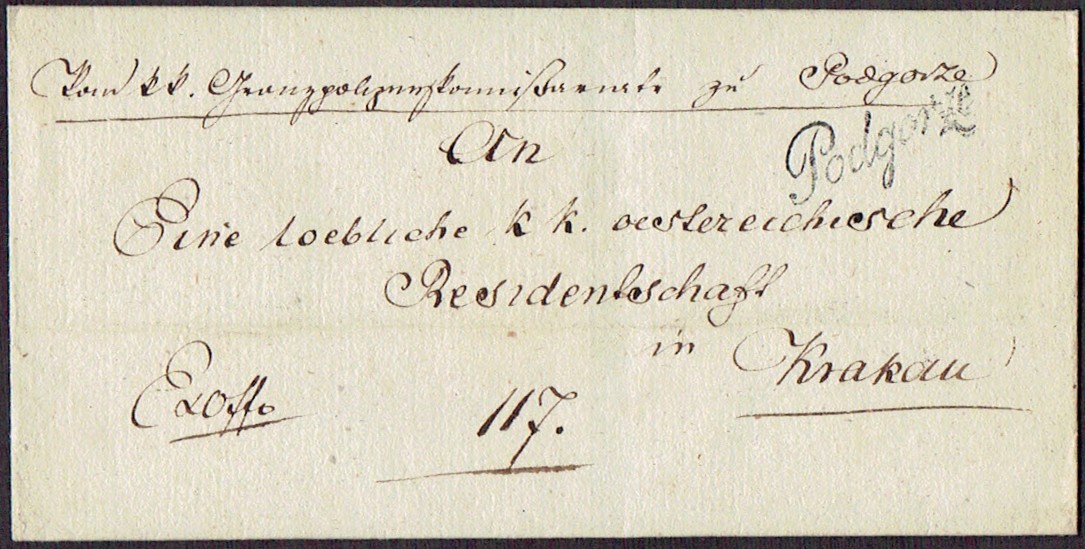 Vom kk. Granzpolizeykommißariate zu Podgorze
Podgorze
An
Eine loebliche k k. oestereichiesche
Residentschaft
in Krakau
Exoffo
117.